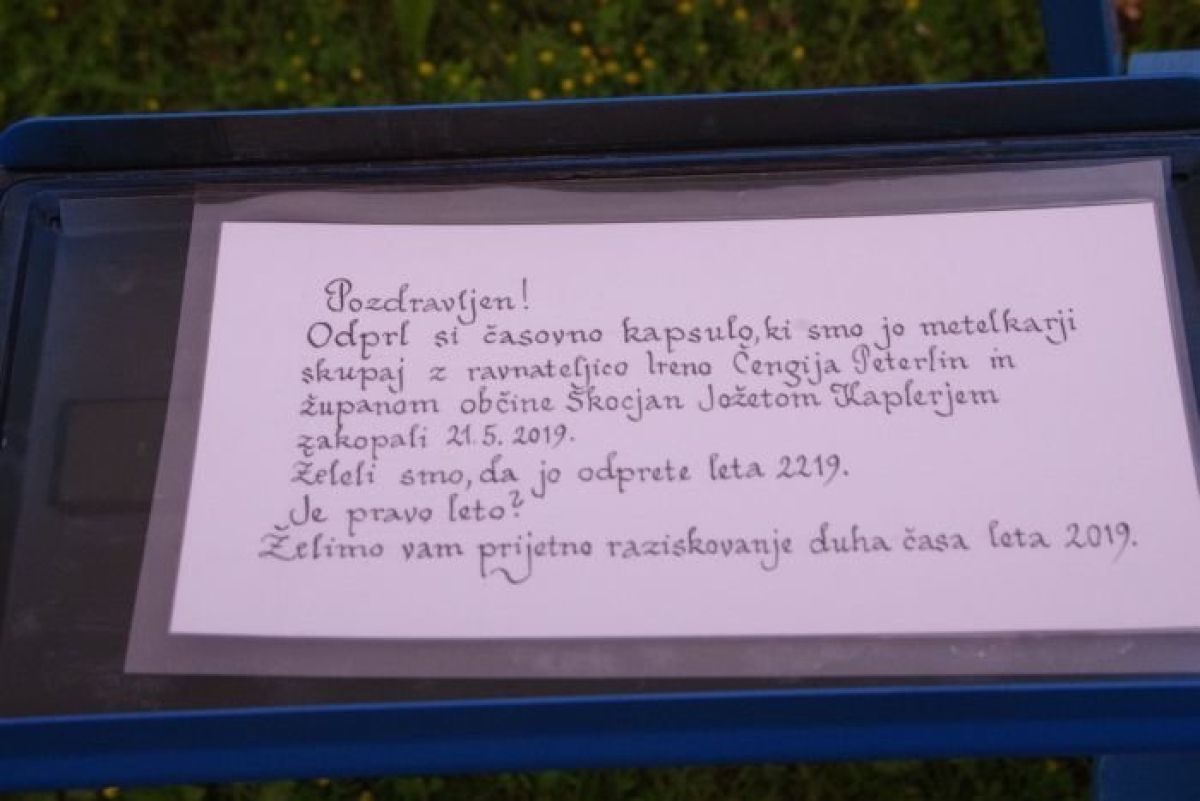 Pozdravljen!
Odprl si časovno kapsulo, ki smo jo metelkarji
skupaj z ravnateljico Ireno Čengija Peterlin in
županom občine Škocjan Jožetom Kaplerjem
zakopali 21.5.2019.
Želeli smo, da jo odprete leta 2219.
Je pravo leto?
Želimo vam prijetno raziskovanje duha časa leta 2019.